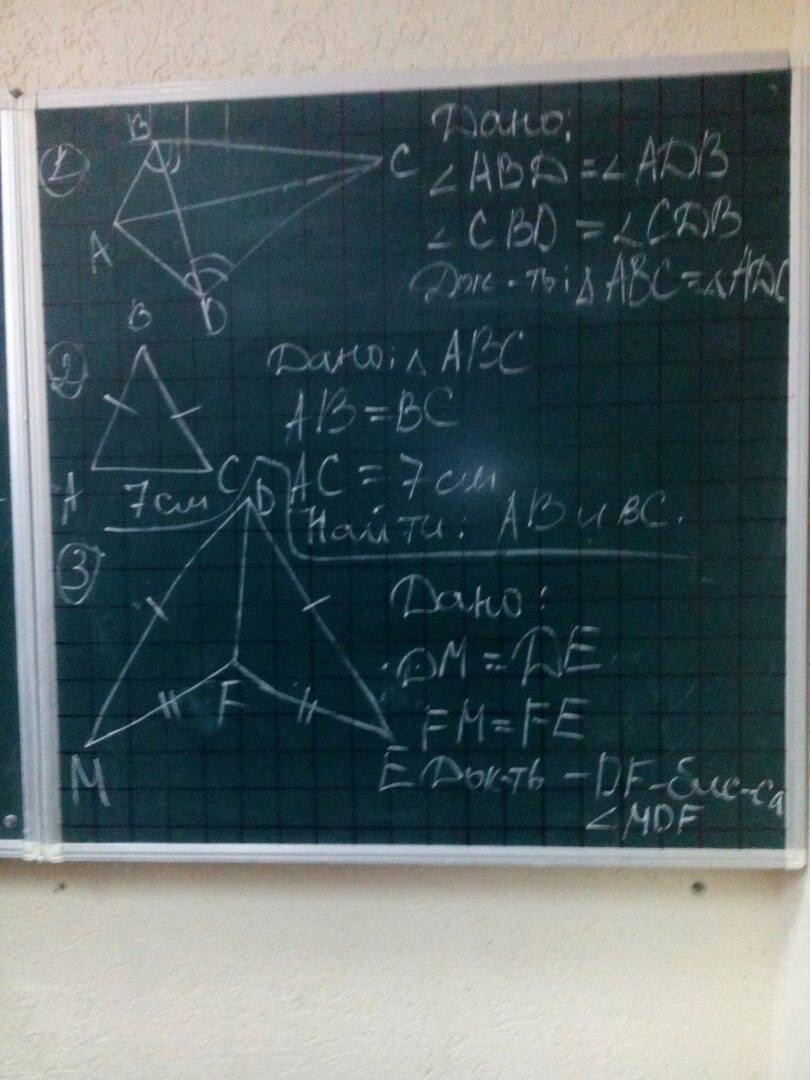 ①
B
C
A
D
Дано:
∠ABD = ∠ADB
∠CBD = ∠CDB
Док-ть: △ABC = △ADC
②
B
A
C
7 см
Дано: △ABC
AB = BC
AC = 7 см
Найти: AB и BC.
③
D
F
M
E
Дано:
DM = DE
FM = FE
Док-ть - DF - бис-са
∠MDF